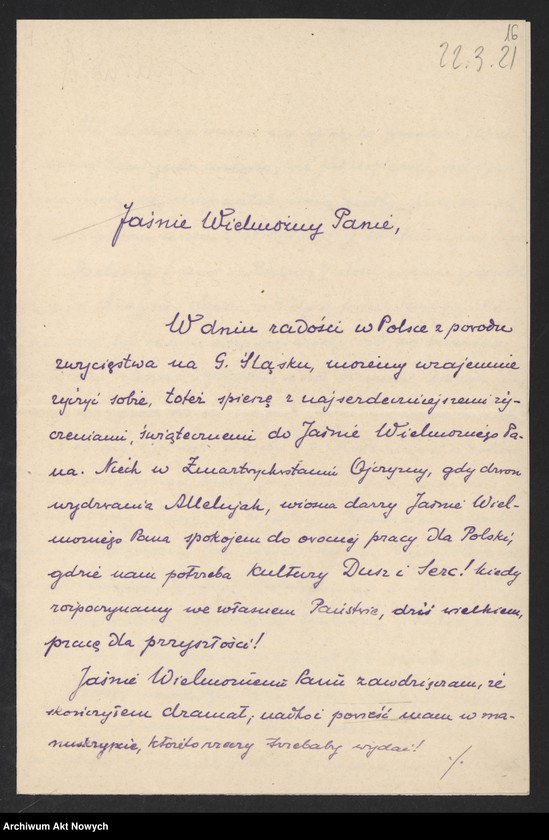 16
22.3.21
Jaśnie Wielmożny Panie,
W dniu radości w Polsce z powodu
zwycięstwa na G. Śląsku, możemy wzajemnie
życzyć sobie, toteż spieszę z najserdeczniejszemi ży-
czeniami, świątecznemi do Jaśnie Wielmożnego Pa-
na. Niech w Zmartwychwstaniu Ojczyzny, gdy dzwon
wydzwania Allelujah, wiosna darzy Jaśnie Wiel-
możnego Pana spokojem do owocnej pracy dla Polski,
gdzie nam potrzeba kultury Dusz i Serc! kiedy
rozpoczynamy we własnem Państwie, dziś wielkiem,
pracę dla przyszłości!
Jaśnie Wielmożnemu Panu zawdzięczam, że
skończyłem dramat, nadto i powieść mam w ma-
nuskrypcie, któreto rzeczy trzebaby wydać!
./.
Archiwum Akt Nowych